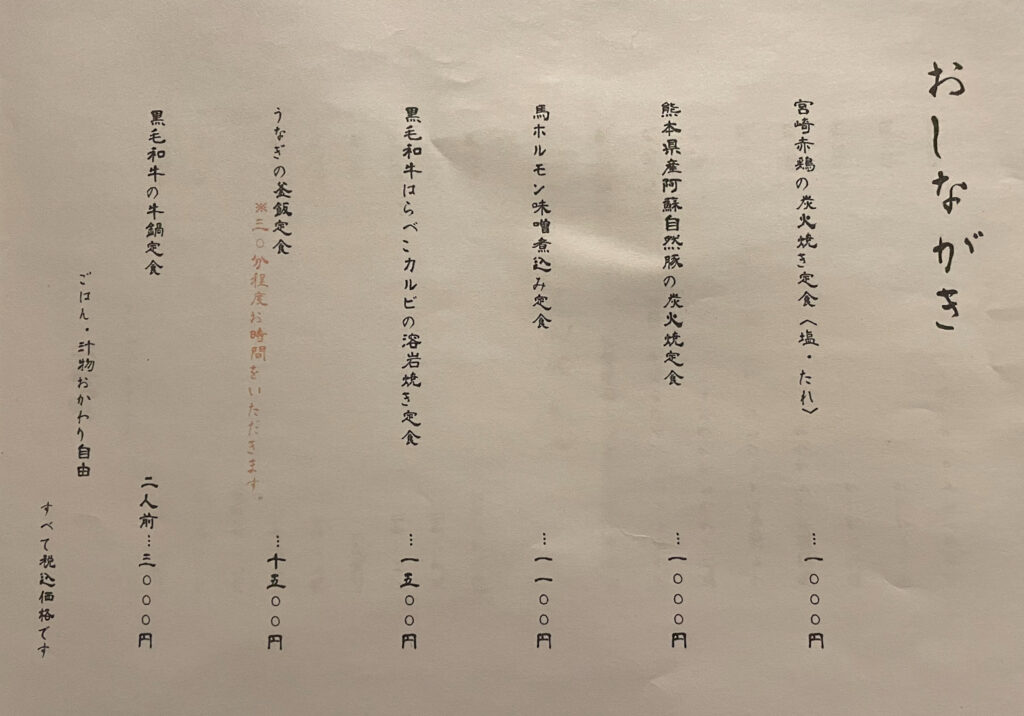 おしながき
宮崎赤鶏の炭火焼き定食〈塩・たれ〉…一〇〇〇円
熊本県産阿蘇自然豚の炭火焼定食…一〇〇〇円
馬ホルモン味噌煮込み定食…一一〇〇円
黒毛和牛はらぺこカルビの溶岩焼き定食…一五〇〇円
うなぎの釜飯定食…十五〇〇円
※三〇分程度お時間をいただきます。
黒毛和牛の牛鍋定食 二人前…三〇〇〇円
ごはん・汁物おかわり自由
すべて税込価格です